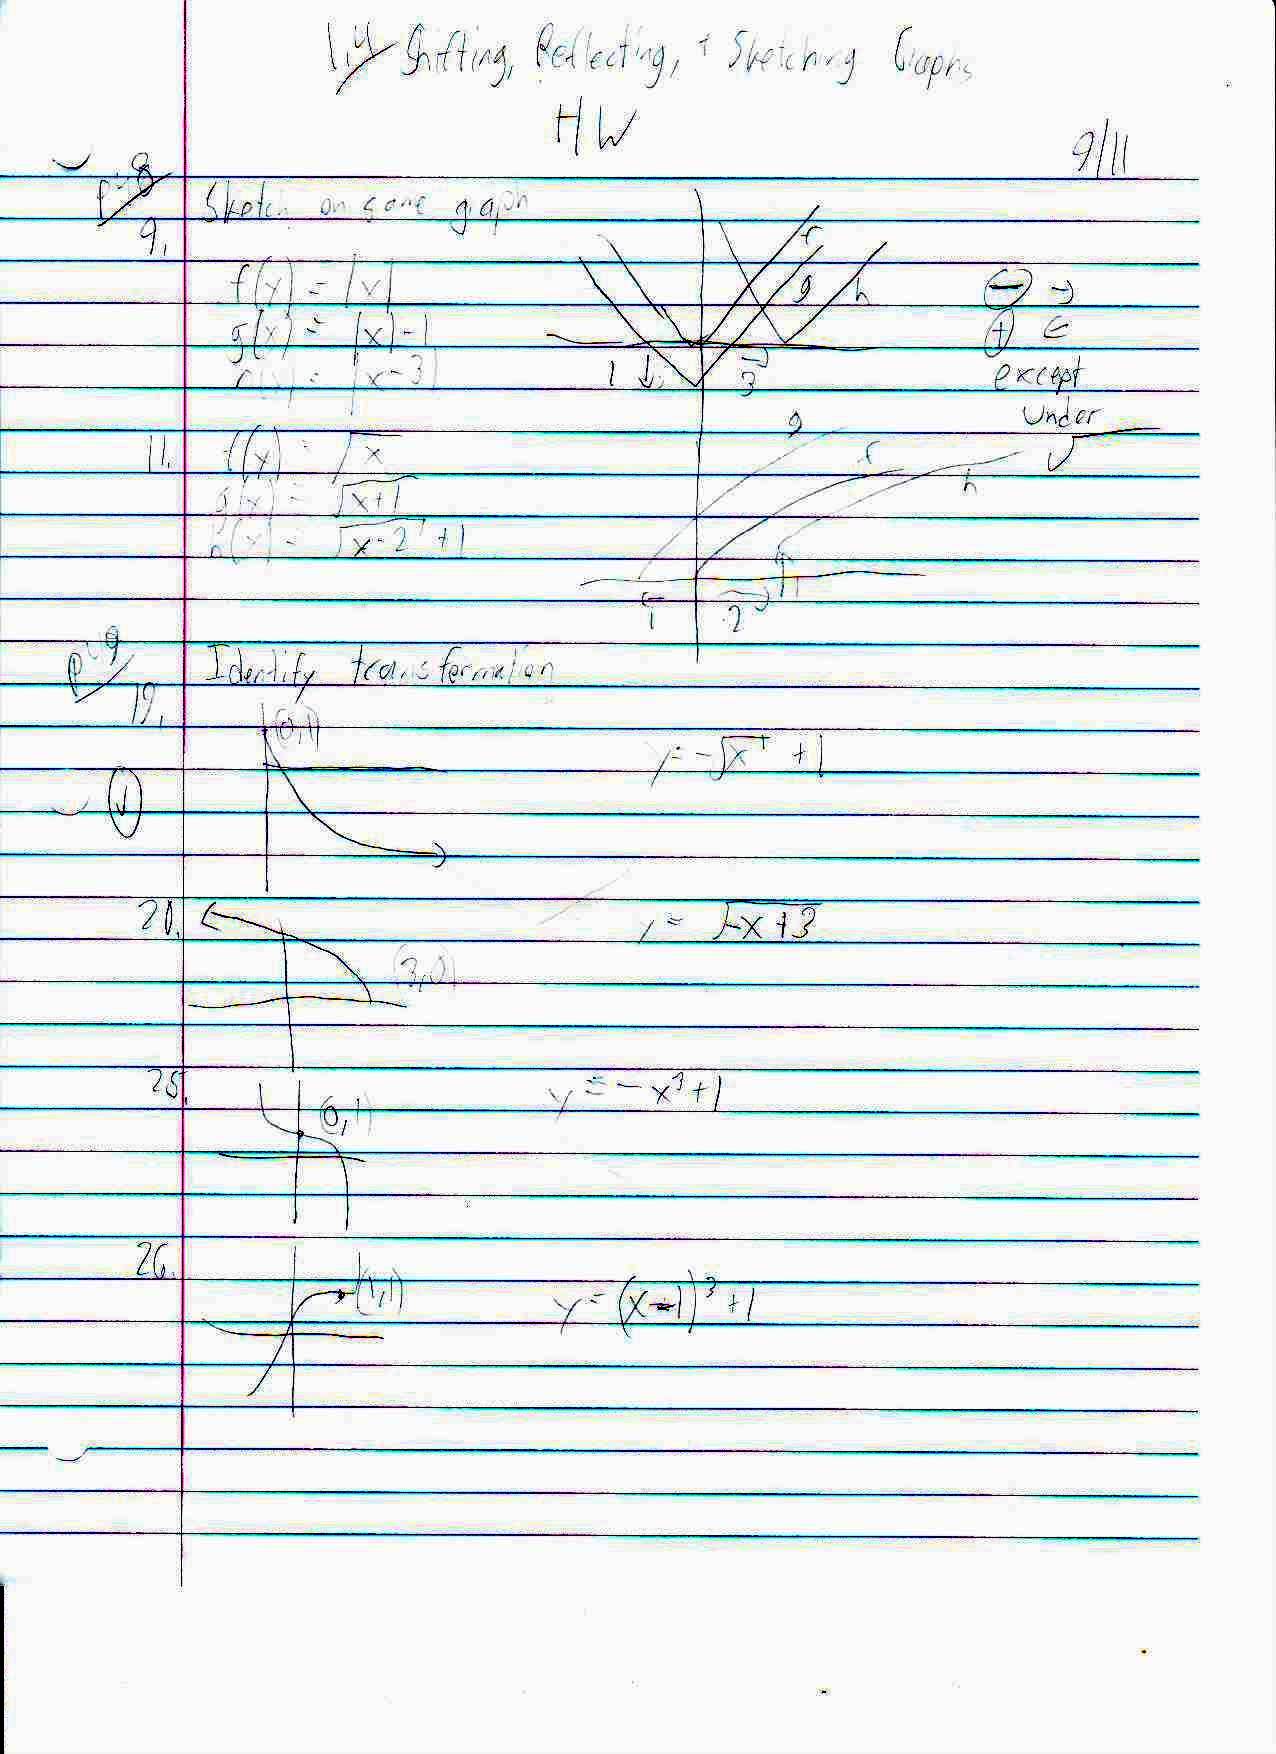 1.4 Shifting, Reflecting, + Sketching Graphs
HW
9/11
P. 48
Sketch on same graph
9.
f(x) = |x|
g(x) = |x| - 1
h(x) = |x - 3|
f
g
h
1 ↓
→ 3
⊖ →
⊕ ←
except
under
√
11.
f(x) = √x
g(x) = √x+1
h(x) = √x-2 + 1
g
f
h
← 1
→ 2
↑ 1
P. 49
Identify transformation
19.
(0,1)
y = -√x + 1
20.
(3,0)
y = √-x+3
25.
(0,1)
y = -x³ + 1
26.
(1,1)
y = (x-1)³ + 1